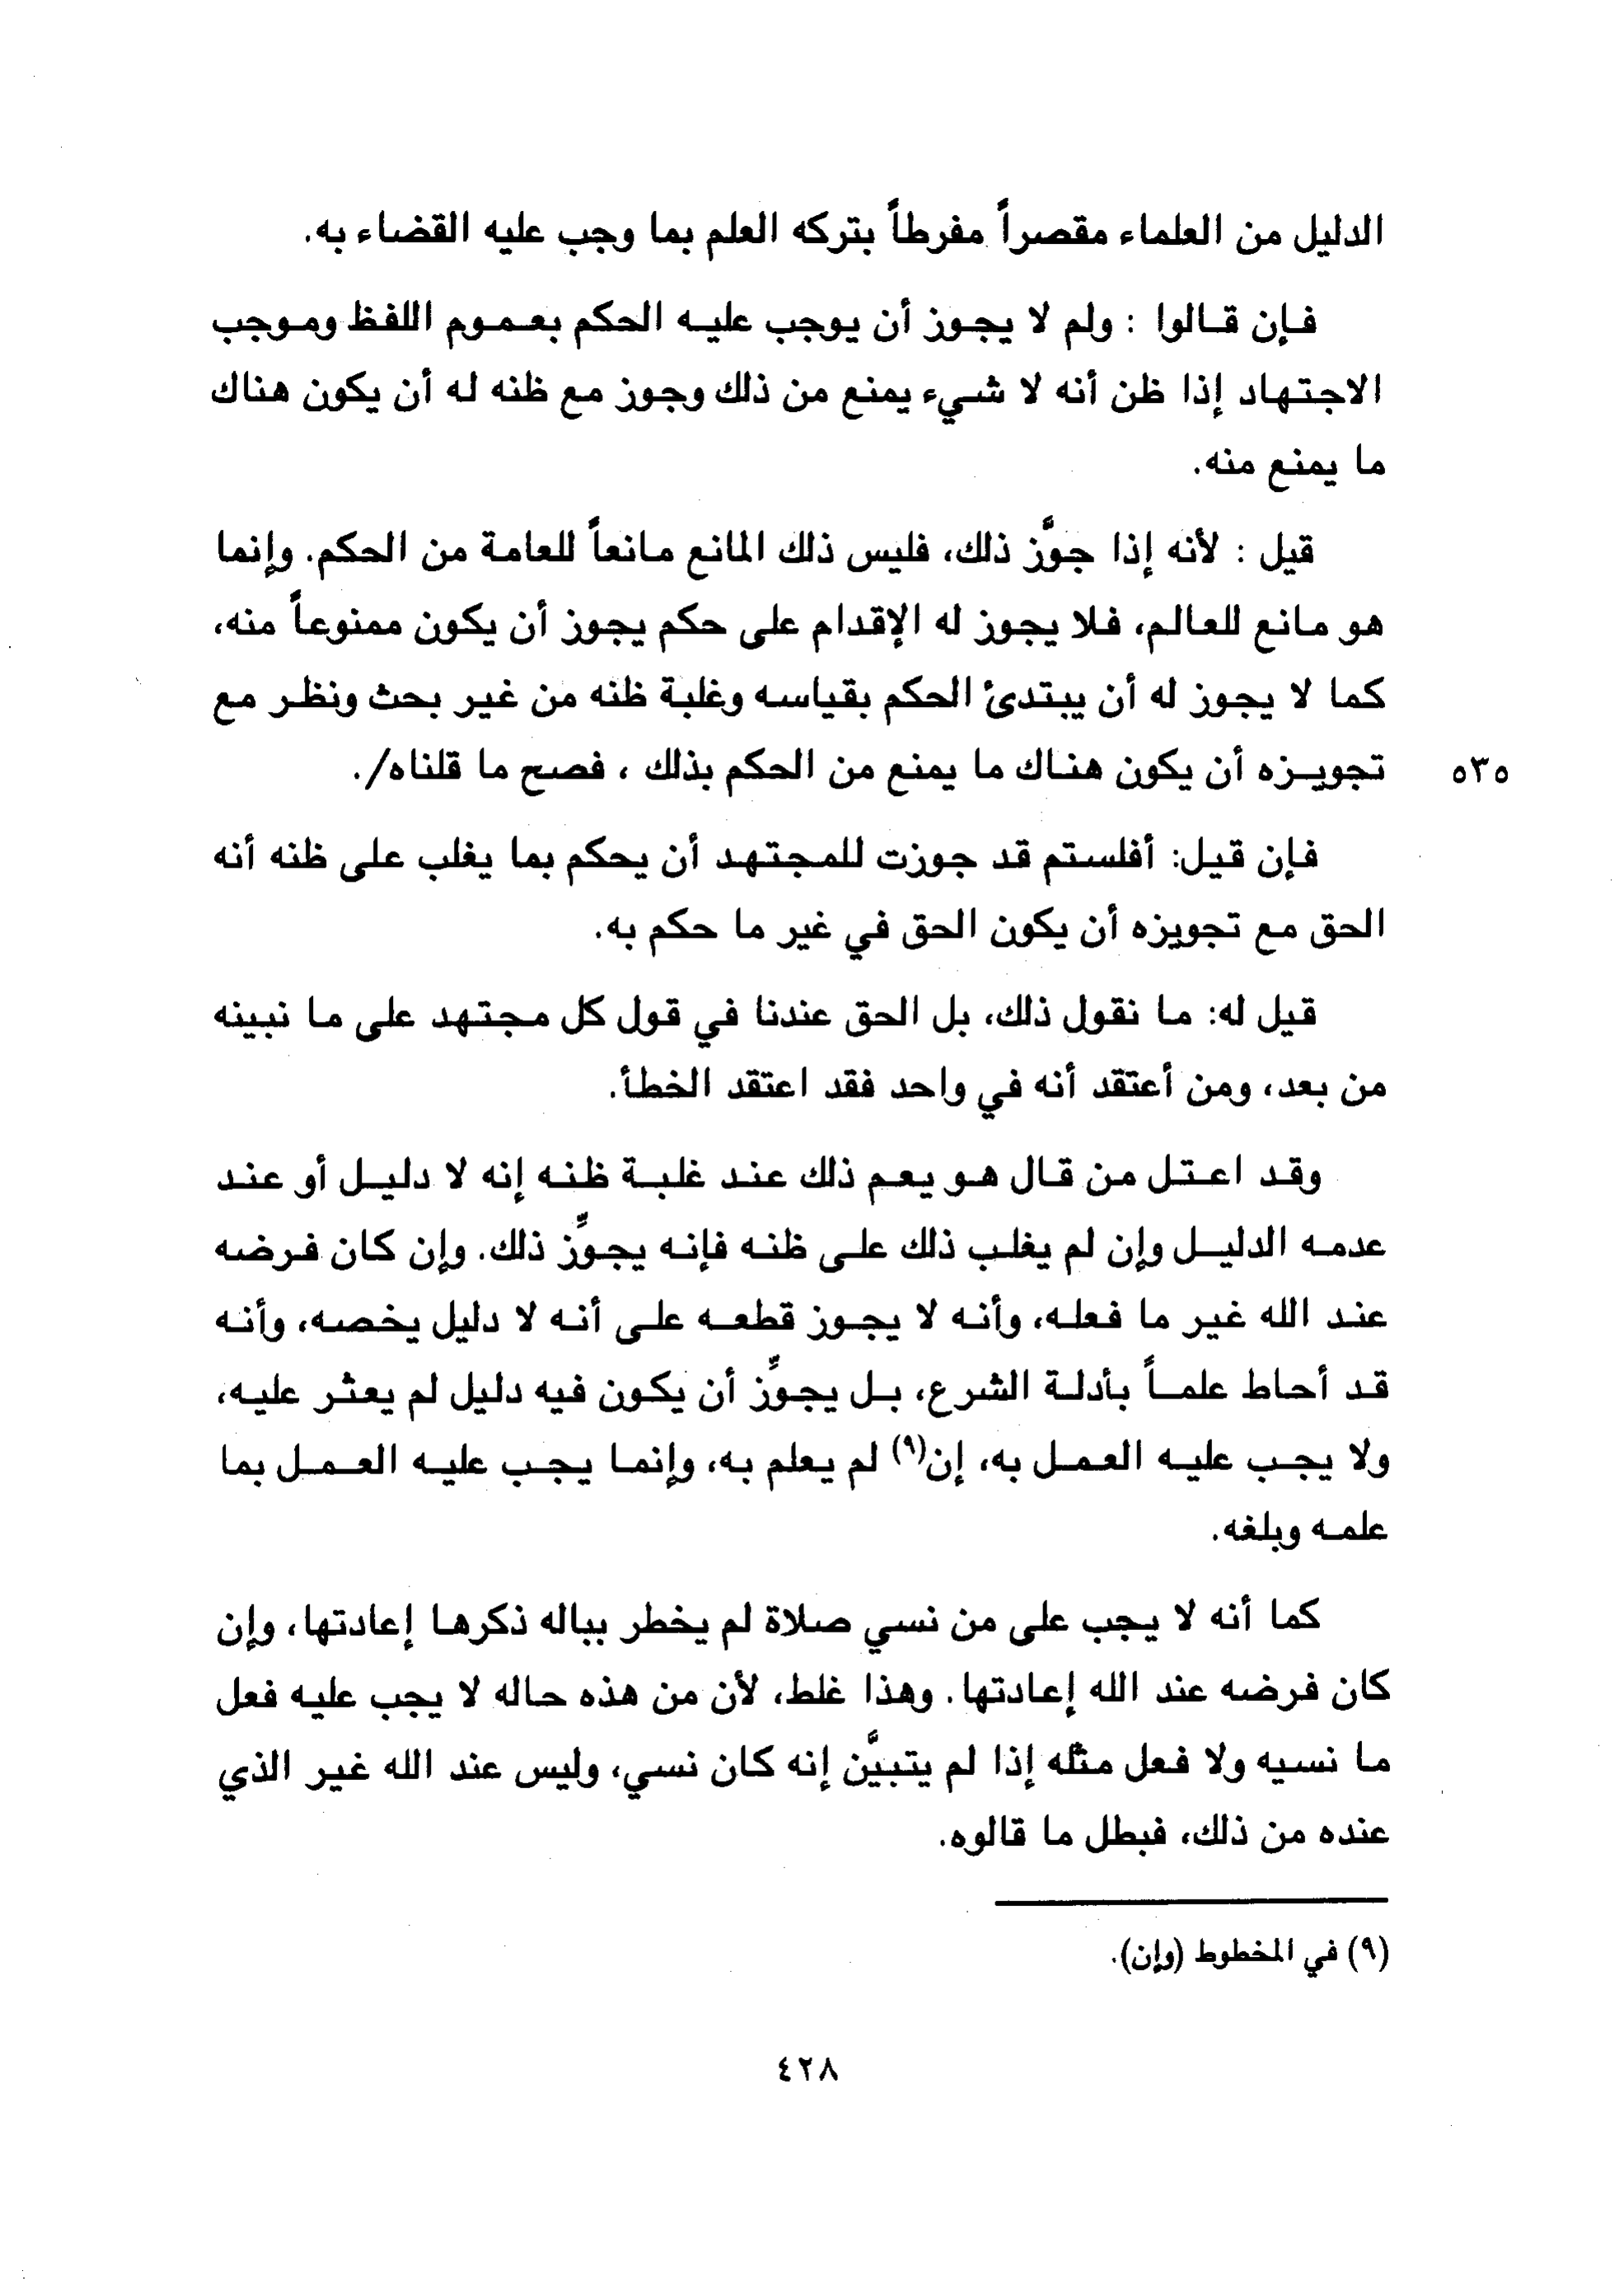 الدليل من العلماء مقصراً مفرطاً بتركه العلم بما وجب عليه القضاء به.
فإن قالوا : ولم لا يجوز أن يوجب عليه الحكم بعموم اللفظ وموجب
الاجتهاد إذا ظن أنه لا شيء يمنع من ذلك وجوز مع ظنه له أن يكون هناك
ما يمنع منه.
قيل : لأنه إذا جوَّز ذلك، فليس ذلك المانع مانعاً للعامة من الحكم. وإنما
هو مانع للعالم، فلا يجوز له الإقدام على حكم يجوز أن يكون ممنوعاً منه،
كما لا يجوز له أن يبتدئ الحكم بقياسه وغلبة ظنه من غير بحث ونظر مع
تجويزه أن يكون هناك ما يمنع من الحكم بذلك ، فصح ما قلناه/.
٥٣٥
فإن قيل: أفلستم قد جوزت للمجتهد أن يحكم بما يغلب على ظنه أنه
الحق مع تجويزه أن يكون الحق في غير ما حكم به.
قيل له: ما نقول ذلك، بل الحق عندنا في قول كل مجتهد على ما نبينه
من بعد، ومن أعتقد أنه في واحد فقد اعتقد الخطأ.
وقد اعتل من قال هو يعم ذلك عند غلبة ظنه إنه لا دليل أو عند
عدمه الدليل وإن لم يغلب ذلك على ظنه فإنه يجوِّز ذلك. وإن كان فرضه
عند الله غير ما فعله، وأنه لا يجوز قطعه على أنه لا دليل يخصه، وأنه
قد أحاط علماً بأدلة الشرع، بل يجوِّز أن يكون فيه دليل لم يعثر عليه،
ولا يجب عليه العمل به، إن(٩) لم يعلم به، وإنما يجب عليه العمل بما
علمه وبلغه.
كما أنه لا يجب على من نسي صلاة لم يخطر بباله ذكرها إعادتها، وإن
كان فرضه عند الله إعادتها. وهذا غلط، لأن من هذه حاله لا يجب عليه فعل
ما نسيه ولا فعل مثله إذا لم يتبيَّن إنه كان نسي، وليس عند الله غير الذي
عنده من ذلك، فبطل ما قالوه.
(٩) في المخطوط (وإن).
٤٢٨